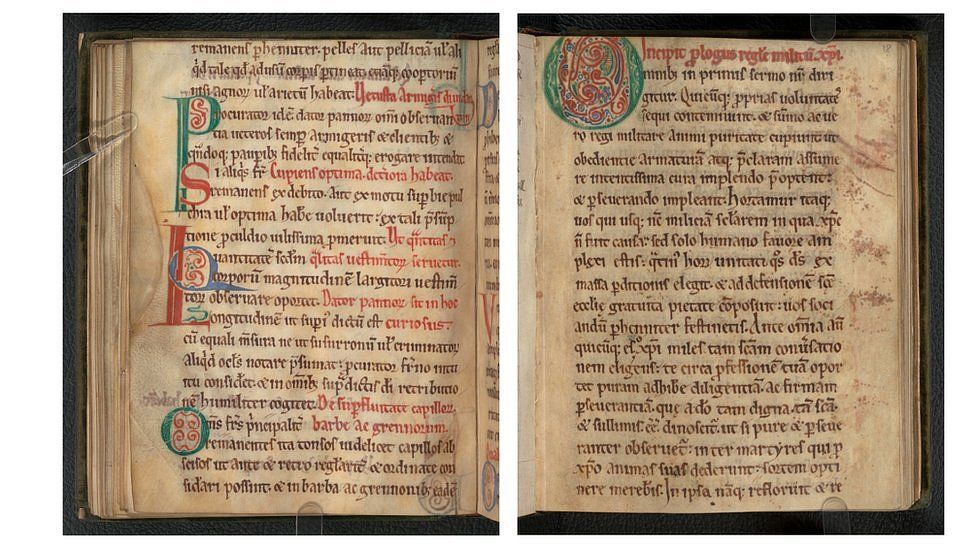 remanens phenniter. pelles aut pelliciā ul ali
qd tale qd ad usū corpis ptineat cuiusq; cooptoriū
nisi agnoꝝ ul arietū habeat. Vetusta Armigis diuidan
Procurator idē dator pannoꝝ omī obseruan tur
tia ueteres semp armigeris & clientib; &
qndoq; paupib; fidelit equalitq; erogare intendat.
Si aliqs fr̄ Cupiens optima. detiora habeat.
remanens ex debito. aut ex motu supbie pul
chra ul optima habē uoluerit: ex tali psūp
tione pculdio uilissima pmeruit. Vt qntitas &
Quantitatē scdm qlitas uestimtoꝝ seruetur.
corporū magnitudinē largitorē uestim
toꝝ obseruare oportet. Dator pannoꝝ sit in hoc
Longitudinē ut supi dictū est curiosus.
cū equali mīsura ne ut susurronū ul criminatoꝝ
aliqd oclis notare psumat: pcurator frno intu
itu consid&. & in omib; supdictis di retributio
nē humiliter cogit&. De supfluitate capilloꝝ
Omis frs pncipalit barbe ac grennorum.
remanentes ita tonsos uidelicet capillos ab
seisos ut ante & retro reglarit & ordinate con
siderari possint. & in barba ac grennonib; eadē
Incipit plogus regle militū xpi.
Omnib; in primis sermo nr̄ diri
gitur. Quicūq; pprias uoluntates
sequi contemnunt. & sūmo ac ue
ro regi militare animi puritate cupiunt ut
obedientie armaturā atq; pclaram assume
re intentissima cura implendo poptent:
& pseuerando impleant. Hortamur itaq;
uos qui usq; nc̄ miliciā sclarem in qua xpc
n̄ fuit causa: sed solo humano fauore am
plexi estis: qtin̄ hoꝝ unitati qs ds ex
massa pditionis elegit. & ad defensionē scē
ecclie gratuita pietate cōposuit: uos soci
andū phenniter festinetis. Ante omia aū
quicūq; es o xpi miles tam scām conuersatio
nem eligens: te circa pfessionē tuā opor
tet puram adhibe diligentiā. ac firmam
pseuerantiā. que a do tam digna. tā scā.
& sullimis. eē dinoscit: ut si pure & pseue
ranter obseruet: inter martyres qui p
xpo animas suas dederunt: sortem opti
nere merebis. In ipsa nāq; refloruit & re